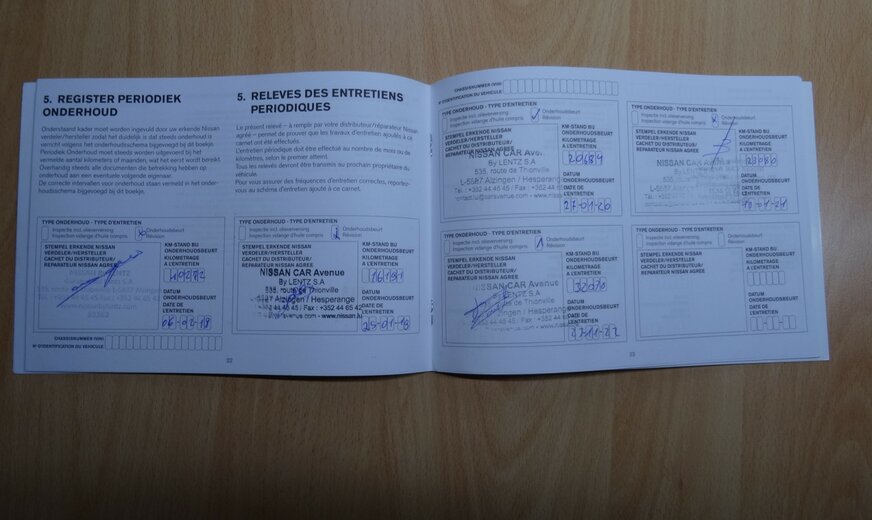 5. REGISTER PERIODIEK
ONDERHOUD
Onderstaand kader moet worden ingevuld door uw erkende Nissan
verdeler/hersteller zodat het duidelijk is dat steeds onderhoud is
verricht volgens het onderhoudsschema bijgevoegd bij dit boekje.
Periodiek Onderhoud moet steeds worden uitgevoerd bij het
vermelde aantal kilometers of maanden, wat het eerst wordt bereikt.
Overhandig steeds alle documenten die betrekking hebben op
onderhoud aan een eventuele volgende eigenaar.
De correcte intervallen voor onderhoud staan vermeld in het onder-
houdsschema bijgevoegd bij dit boekje.
5. RELEVES DES ENTRETIENS
PERIODIQUES
Le présent relevé – à remplir par votre distributeur/réparateur Nissan
agréé – permet de prouver que les travaux d'entretien ajoutés à ce
carnet ont été effectués.
L'entretien périodique doit être effectué au nombre de mois ou de
kilomètres, selon le premier atteint.
Tous les relevés devront être transmis au prochain propriétaire du
véhicule.
Pour vous assurer des fréquences d'entretien correctes, reportez-
vous au schéma d'entretien ajouté à ce carnet.
TYPE ONDERHOUD - TYPE D'ENTRETIEN
Inspectie incl. olieverversing
Inspection vidange d'huile compris
Onderhoudsbeurt
Révision
STEMPEL ERKENDE NISSAN
VERDELER/HERSTELLER
CACHET DU DISTRIBUTEUR/
REPARATEUR NISSAN AGREE
KM-STAND BIJ
ONDERHOUDSBEURT
KILOMETRAGE
A L'ENTRETIEN
DATUM
ONDERHOUDSBEURT
DATE DE
L'ENTRETIEN
06-02-18
CHASSISNUMMER (VIN)
N° D'IDENTIFICATION DU VEHICULE
TYPE ONDERHOUD - TYPE D'ENTRETIEN
Inspectie incl. olieverversing
Inspection vidange d'huile compris
Onderhoudsbeurt
Révision
STEMPEL ERKENDE NISSAN
VERDELER/HERSTELLER
CACHET DU DISTRIBUTEUR/
REPARATEUR NISSAN AGREE
NISSAN CAR Avenue
By LENTZ S.A
535, route de Thionville
L-5887 Alzingen / Hesperange
44 45 45 / Fax : +352 44 65 42
KM-STAND BIJ
ONDERHOUDSBEURT
KILOMETRAGE
A L'ENTRETIEN
DATUM
ONDERHOUDSBEURT
DATE DE
L'ENTRETIEN
32
CHASSISNUMMER (VIN)
N° D'IDENTIFICATION DU VEHICULE
TYPE ONDERHOUD - TYPE D'ENTRETIEN
Inspectie incl. olieverversing
Inspection vidange d'huile compris
Onderhoudsbeurt
Révision
STEMPEL ERKENDE NISSAN
VERDELER/HERSTELLER
CACHET DU DISTRIBUTEUR/
REPARATEUR NISSAN AGREE
NISSAN CAR Ave
By LENTZ S.A
535, route de Thionville
L-5887 Alzingen / Hesperang
Tél. : +352 44 45 45 / Fax : +352 44
KM-STAND BIJ
ONDERHOUDSBEURT
KILOMETRAGE
A L'ENTRETIEN
DATUM
ONDERHOUDSBEURT
DATE DE
L'ENTRETIEN
27-01-20
TYPE ONDERHOUD - TYPE D'ENTRETIEN
Inspectie incl. olieverversing
Inspection vidange d'huile compris
Onderhoudsbeurt
Révision
STEMPEL ERKENDE NISSAN
VERDELER/HERSTELLER
CACHET DU DISTRIBUTEUR/
REPARATEUR NISSAN AGREE
KM-STAND BIJ
ONDERHOUDSBEURT
KILOMETRAGE
A L'ENTRETIEN
DATUM
ONDERHOUDSBEURT
DATE DE
L'ENTRETIEN
TYPE ONDERHOUD - TYPE D'ENTRETIEN
Inspectie incl. olieverversing
Inspection vidange d'huile compris
Onderhoudsbeurt
Révision
STEMPEL ERKENDE NISSAN
VERDELER/HERSTELLER
CACHET DU DISTRIBUTEUR/
REPARATEUR NISSAN AGREE
NISSAN CAR Avenue
By LENTZ S.A
de Thionville
Alzingen / Hesperange
KM-STAND BIJ
ONDERHOUDSBEURT
KILOMETRAGE
A L'ENTRETIEN
DATUM
ONDERHOUDSBEURT
DATE DE
L'ENTRETIEN
TYPE ONDERHOUD - TYPE D'ENTRETIEN
Inspectie incl. olieverversing
Inspection vidange d'huile compris
Onderhoudsbeurt
Révision
STEMPEL ERKENDE NISSAN
VERDELER/HERSTELLER
CACHET DU DISTRIBUTEUR/
REPARATEUR NISSAN AGREE
KM-STAND BIJ
ONDERHOUDSBEURT
KILOMETRAGE
A L'ENTRETIEN
DATUM
ONDERHOUDSBEURT
DATE DE
L'ENTRETIEN
33